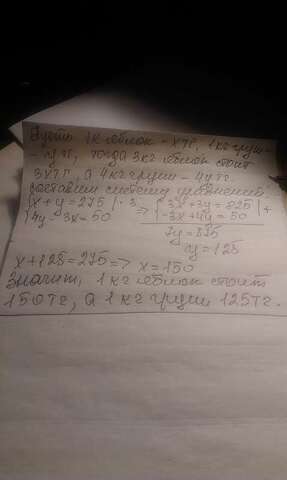 Пусть 1кг яблок - x тг, 1кг груш -
- y тг, тогда 3кг яблок стоит
3x тг, а 4кг груш - 4y тг.
Составим систему уравнений:
{x + y = 275 | · 3 => {3x + 3y = 825 | +
{4y - 3x = 50 {-3x + 4y = 50
7y = 875
y = 125
x + 125 = 275 => x = 150
Значит, 1кг яблок стоит
150тг, а 1кг груш 125тг.